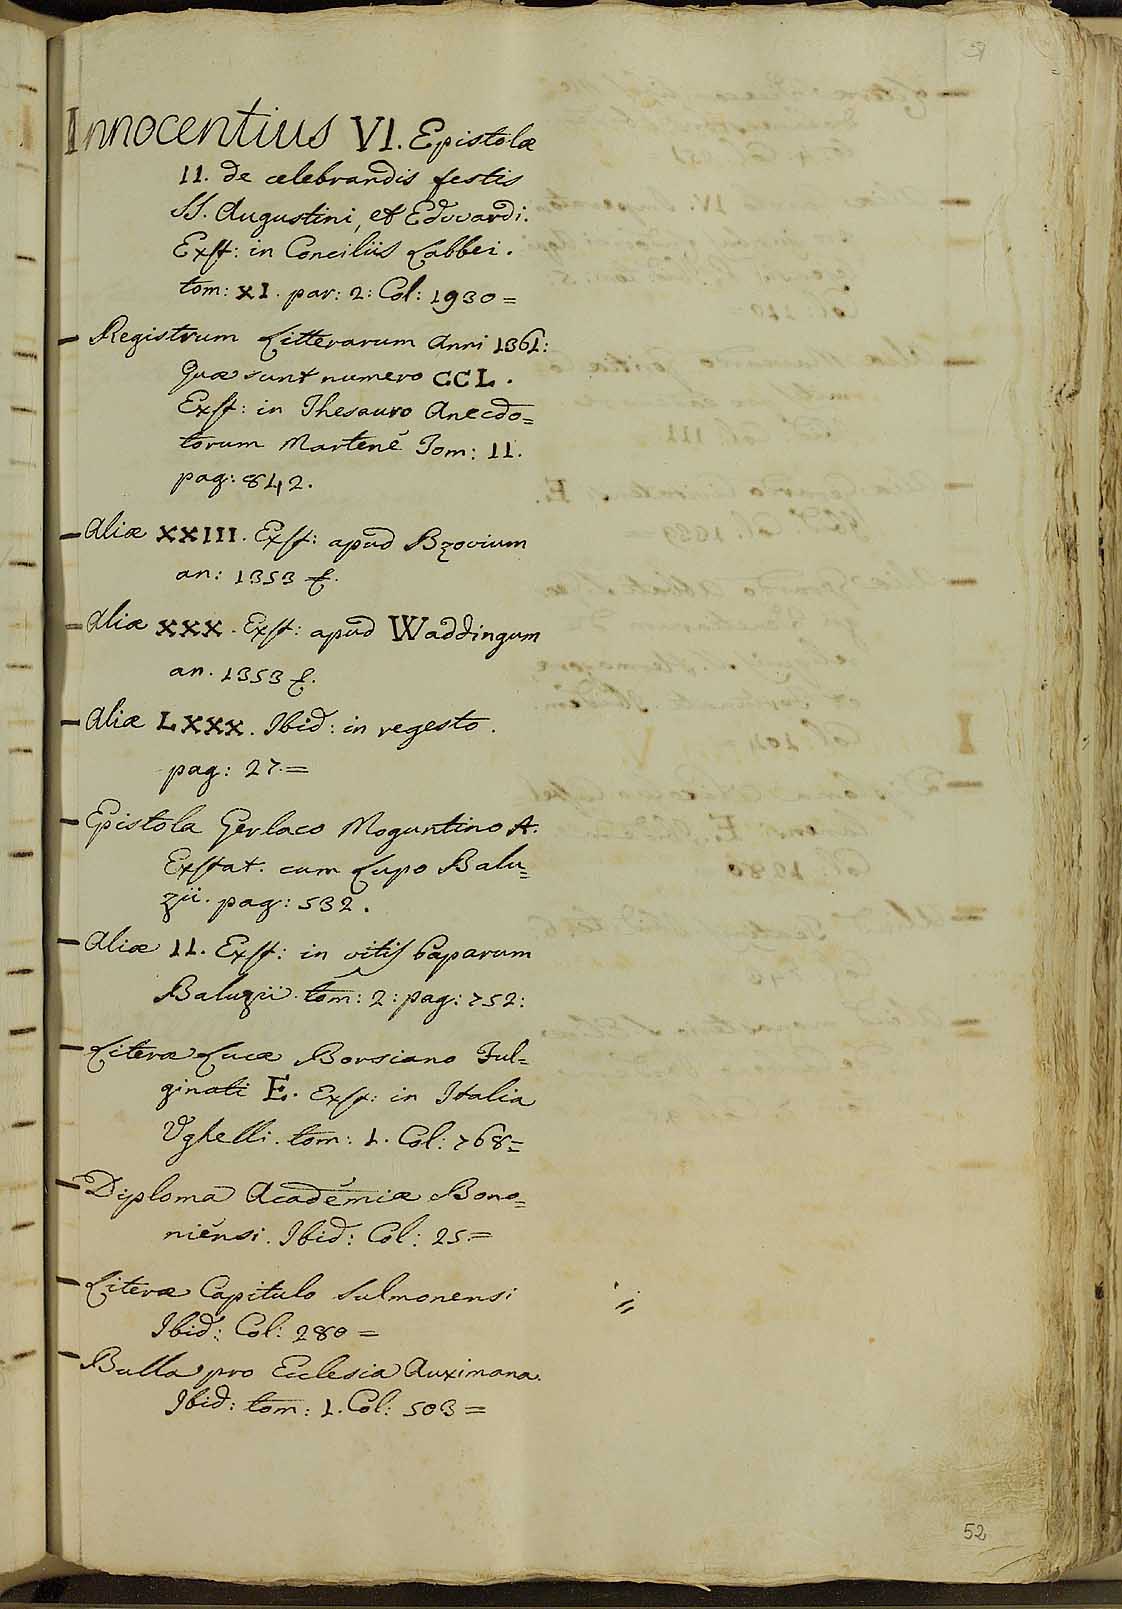 Innocentius VI. Epistolæ
II. de celebrandis festis
SS. Augustini, et Edvvardi.
Exst: in Conciliis Labbei.
tom: XI. par: 2: Col: 1930=
Registrum Litterarum Anni 1361:
Quæ sunt numero CCL.
Exst: in Thesauro Anecdo=
torum Martenè Tom: II.
pag: 842.
Aliæ XXIII. Exst: apud Bzovium
an: 1353 &.
Aliæ XXX. Exst: apud Waddingum
an. 1353 &.
Aliæ LXXX. Ibid: in regesto.
pag: 27.=
Epistola Gerlaco Moguntino A.
Exstat. cum Lupo Balu=
zii. pag: 532.
Aliæ II. Exst: in vitis Paparum
Baluzii. tom: 2: pag: 752:
Literæ Lucæ Borsiano Ful=
ginati E. Exst: in Italia
Vghelli. tom: 1. Col: 768=
Diploma Académiæ Bono=
niensi. Ibid: Col: 25.=
Literæ Capitulo Sulmonensi
Ibid: Col: 280=
Bulla pro Ecclesia Auximana.
Ibid: tom: 1. Col: 503=
52